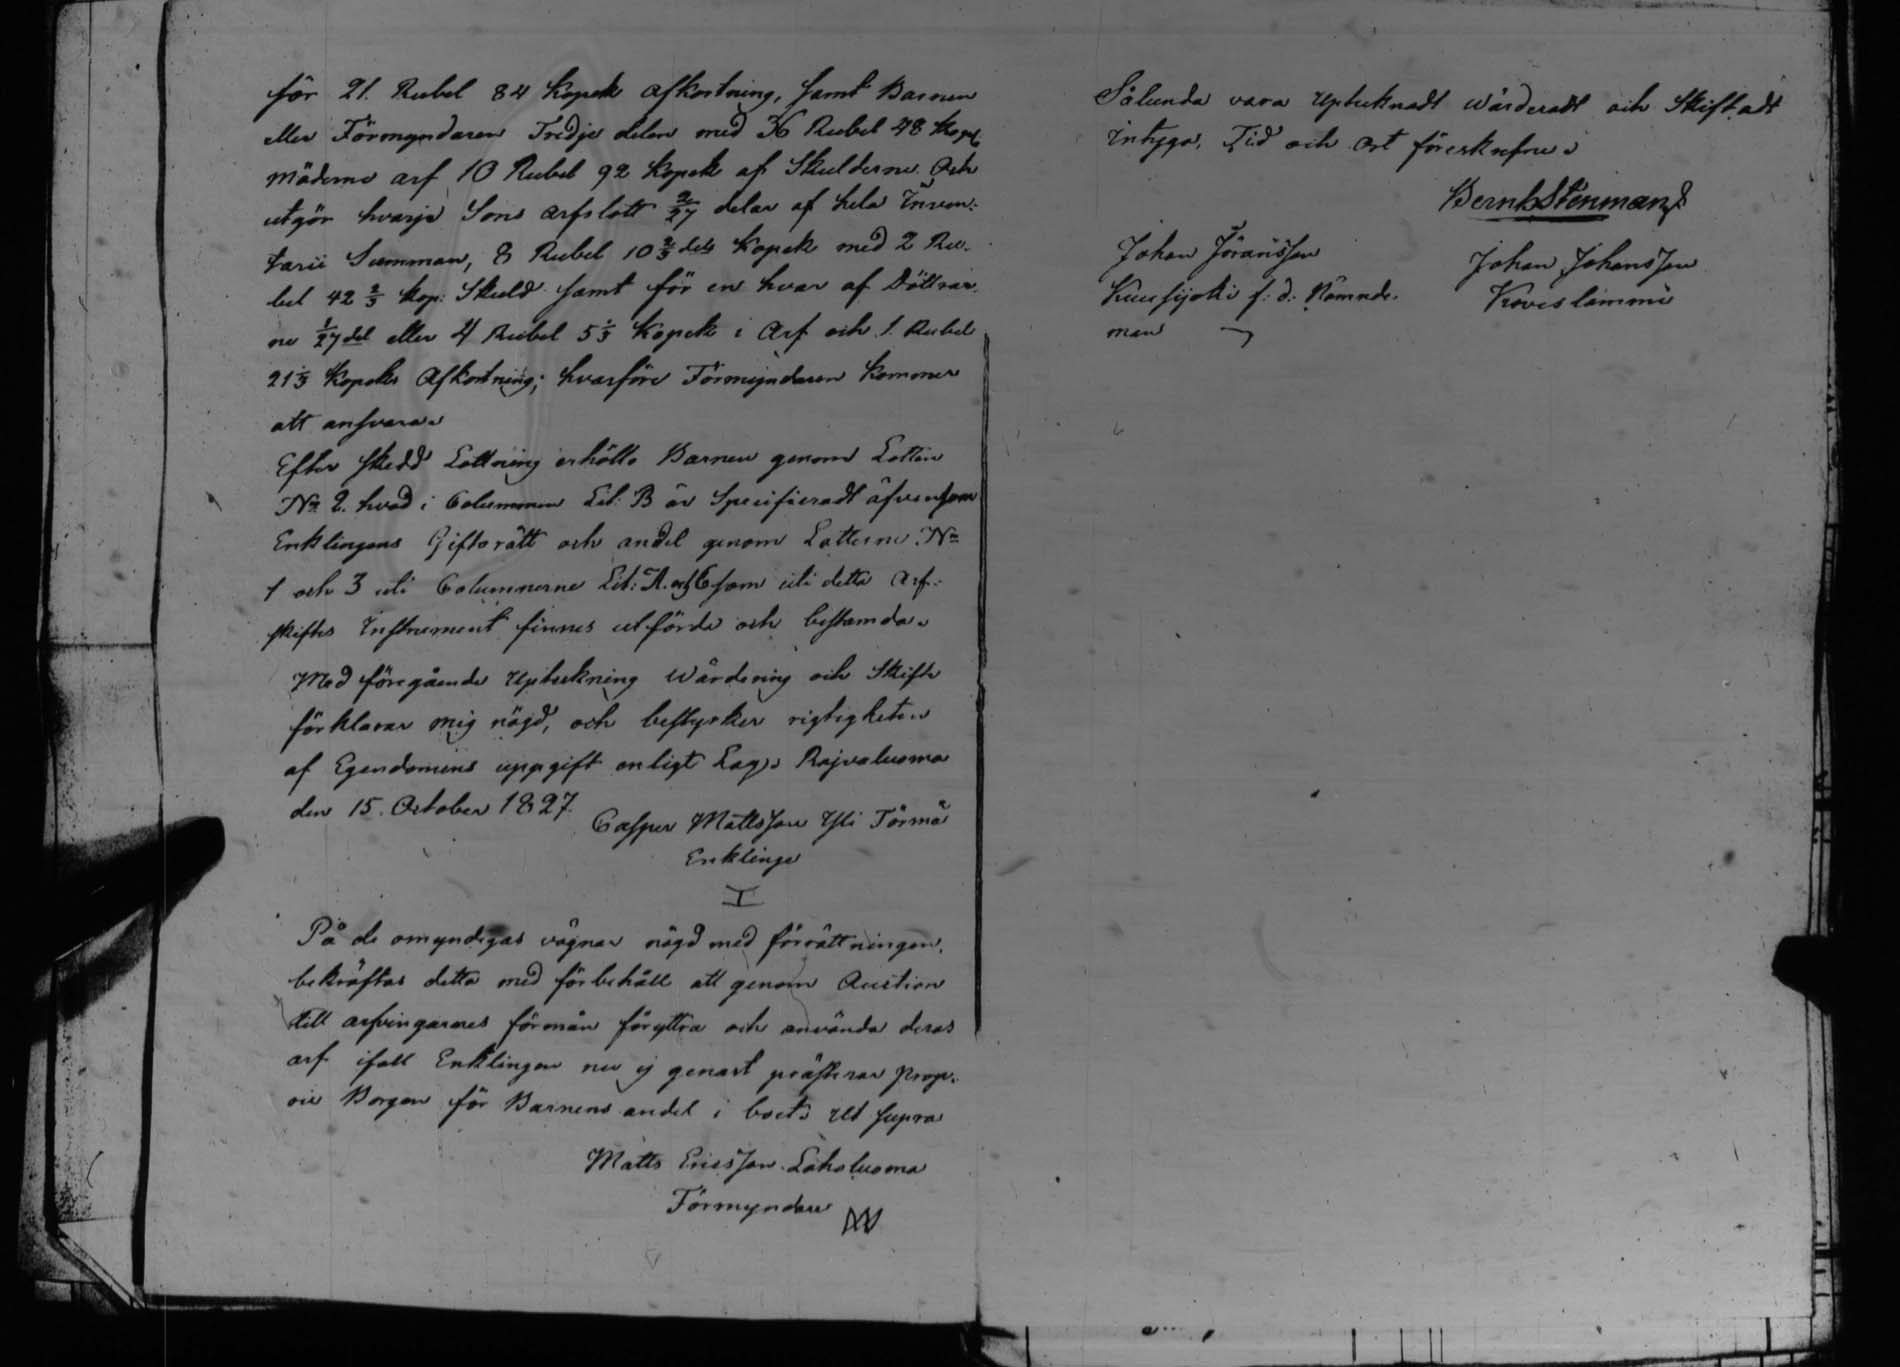 för 21. Rubel 84 Kopek afkortning, samt Barnen
eller Förmyndaren Tredje delen med 36 Rubel 48 Kopek
möderne arf 10 Rubel 92 Kopek af Skulderne. Och
utgör hvarje Sons arfslott 2/27 delar af hela Inven:
tarii Summan, 8 Rubel 10 2/3 dels Kopek med 2 Ru-
bel 42 2/3 Kop: Skuld samt för en hvar af Döttrar.
ne 1/27 del eller 4 Rubel 5 1/3 Kopek i Arf och 1. Rubel
21 1/3 Kopeks Afkortning; hvarföre Förmyndaren kommer
att ansvara.
Efter skedd Lottning erhöllo Barnen genom Lotten
No 2. hvad i Columnen Lit: B är Specificeradt äfvensom
Enklingens Giftorätt och andel genom Lotterne No
1 och 3 uti Columnerne Lit: A. och C som uti detta Arf-
skiftes Instrument finnes utförde och bestämda.
Med föregående Uptekning Wärdering och Skifte
förklarar mig nögd, och bestyrker rigtigheten
af Egendomens uppgift enligt Lag; Rajvaluoma
den 15. October 1827.
Casper Mattsson Yli Törmä
Enklinge
På de omyndigas vägnar nögd med förrättningen,
bekräftas detta med förbehåll att genom Auction
till arfvingarnes förmån föryttra och använda deras
arf ifall Enklingen nu ej genast præsterar prop-
rie Borgen för Barnens andel i boet; Ut supra
Matts Ericsson Laholuoma
Förmyndare
Sålunda vara Uptecknadt Wärderadt och Skiftadt
Intyga, Tid och Ort föreskrefne;
Bernh Stenman
Johan Jöransson
Johan Johansson
Kuusijoki f: d: Nämnde-
Koveslammi
man